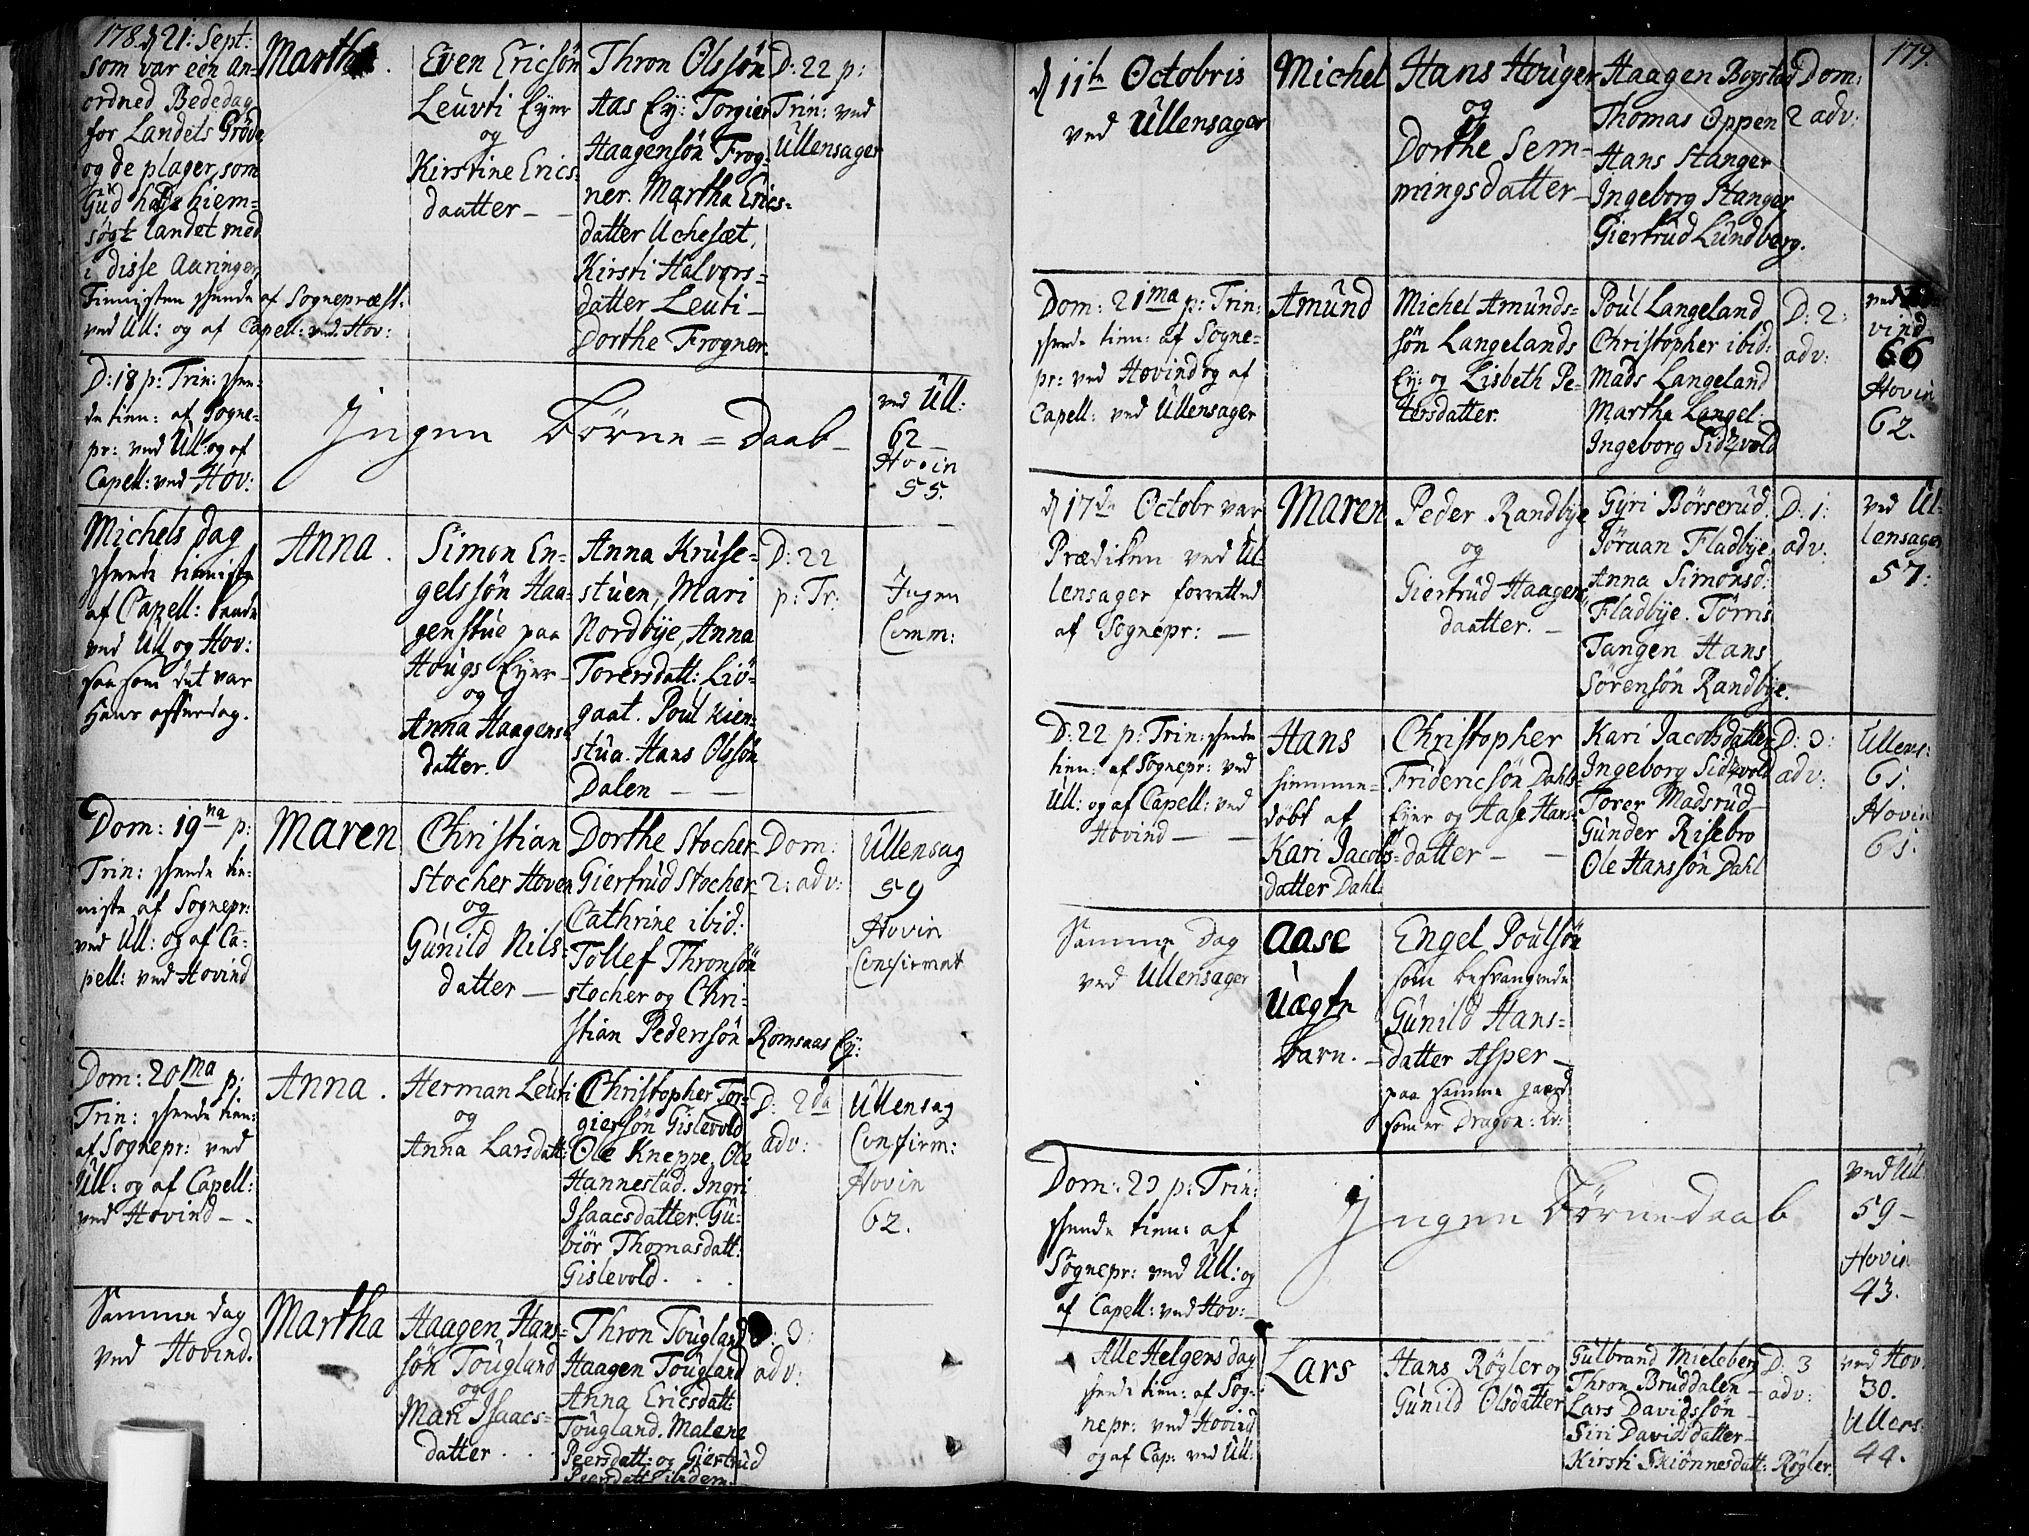 178.
d 21: Sept:
som var een an-
ordned Bededag
for Landets Gröde
og de plager, som
Gud hade hiem-
søgt landet med
i disse Aaringer
Tienisten skeede af Sognepræst:
ved Ull: og af Capell: ved Hov:
Martha.
Even Ericsön
Leuvti Eyer
og
Kirstine Erics-
daatter -
Thron Olssön
Aas Ey: Torgier
Haagensön Frog-
ner. Martha Erics-
datter Uchesæt,
Kirsti Halvors-
datter Leuti -
Dorthe Frogner.
D: 22 p:
Trin: ved
Ullensager
D: 18 p: Trin: skee-
de tien: af Sogne-
pr: ved Ull: og af
Capell: ved Hov:
Ingen Börne-Daab
ved Ull:
62
Hovin
55.
Michels dag
skeede tieniste
af Capell: baade
ved Ull og Hov:
saasom det var
Hans offerdag.
Anna.
Simon En-
gelssön Haa-
genstue paa
Hougs Eyer
og
Anna Haagens-
datter.
Anna Kruse-
stuen, Mari
Nordbÿe, Anna
Torersdatt: Liö-
gaat. Poul Kien-
stua. Hans Olssön
Dalen - -
D: 22
p: Tr:
Ingen
Comm:
Dom: 19na p:
Trin: skeede tie-
niste af Sognepr:
ved Ull: og af Ca-
pell: ved Hovind
Maren
Christian
Stocher Hoven
og
Gunild Nils-
datter -
Dorthe Stocher
Giertrud Stocher
Cathrine ibid:
Tollef Thronsön
Stocher og Chri-
stian Pederssön Romsaas Ey:
Dom:
2: adv:
Ullensag
59
Hovin
Confirmat
Dom: 20ma p:
Trin: skeede tien:
af Sognepr: ved
Ull: og af Capell:
ved Hovind -
Anna.
Herman Leuti
og
Anna Larsdatt:
Christopher Tor-
giersön Gislevold
Ole Kneppe. Ole
Hannestad. Ingri
Isaacsdatter. Gu-
biör Thomasdatt:
Gislevold.
D: 2da
adv:
Ullensag
Confirm:
Hovin
62.
Samme dag
ved Hovind.
Martha
Haagen Hans-
sön Tougland
og
Mari Isaacs-
datter.
Thron Tougland
Haagen Tougland
Anna Ericsdatt:
Tougland. Malene
Peersdatt: og Giertrud
Peersdatt ibidem.
D: 3:
adv:
179.
d 11te Octobris
ved Ullensager
Michel
Hans Houger
og
Dorthe Sem-
mingsdatter -
Haagen Bogstad
Thomas Oppen
Hans Stanger
Ingeborg Stanger
Giertrud Lundberg.
Dom:
2 adv:
Dom: 21ma p: Trin:
skeede tien: af Sogne-
pr: ved Hovind og af
Capell: ved Ullensager
Amund
Michel Amunds-
sön Langelands
Ey: og Lisbeth Pe-
tersdatter.
Poul Langeland
Christopher ibid:
Mads Langeland
Martha Langel:
Ingeborg Sidzvold
D: 2:
adv:
ved
vind
66
Hovin
62.
d 17de Octobr var
Prædiken ved Ul-
lensager forretted
af Sognepr: -
Maren
Peder Randbÿe
og
Giertrud Haagens
daatter. -
Gyri Börserud.
Jöraan Fladbÿe
Anna Simonsd:
Fladbÿe. Törris
Tangen Hans
Sörensön Randbÿe.
D: 1:
adv:
ved Ul-
lensager
57:
D: 22 p: Trin: skeede
tien: af Sognepr: ved
Ull: og af Capell: ved
Hovind -
Hans
hiemme-
döbt af
Kari Jacobs-
datter Dahl:
Christopher
Fridericsön Dahls-
Eyer og Aase Hans-
datter - -
Kari Jacobsdatter
Ingeborg Sidzvold
Torer Madsrud
Gunder Risebro
Ole Hanssön Dahl
D: 3:
adv:
Ullens:
61.
Hovin
61.
Samme Dag
ved Ullensager
Aase
Uægte
barn. -
Engel Poulsön
som besvangrede
Gunild Hans-
datter Asper -
paa samme gaard
som er Dragon: Ls:
Dom: 23 p: Trin:
skeede tien: af
Sognepr: ved Ull: og
af Capell: ved Hov:
Ingen Börnedaab
ved Ull:
59 -
Hovin
43.
Alle Helgens dag
skeede tien: af Sog-
nepr: ved Hovind
og af Cap: ved Ull:
Lars
Hans Røgler og
Gunild Olsdatter
Gulbrand Mieleberg
Thron Bruddalen -
Lars Davidssön -
Siri Davidsdatter -
Kirsti Skiönnesdatt: Røgler.
D: 3
adv:
ved Hov:
30.
Ullens:
44.